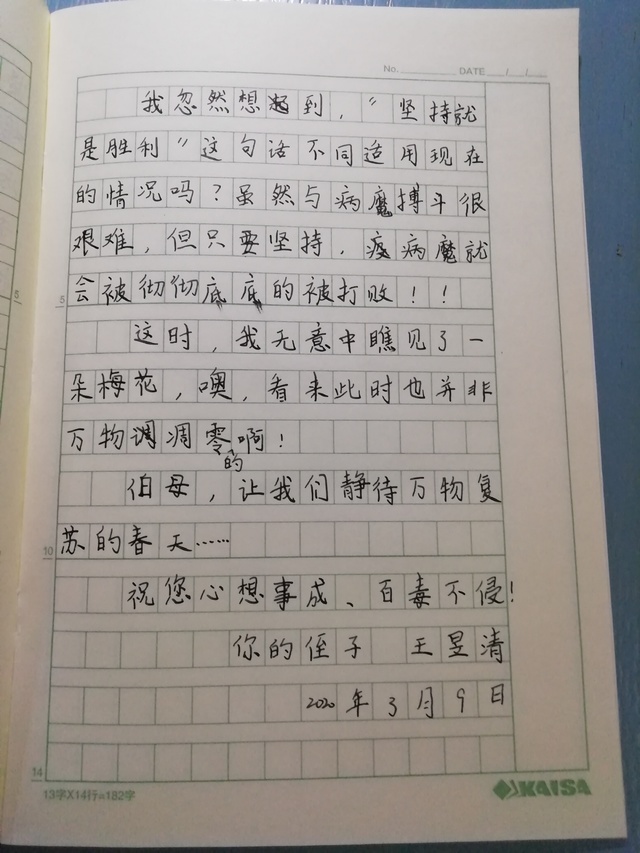 No. DATE / /
我忽然想起到，“坚持就
是胜利”这句话不同适用现在
的情况吗？虽然与病魔搏斗很
艰难，但只要坚持，疫病魔就
会被彻彻底底的被打败！！
5
5
这时，我无意中瞧见了一
朵梅花，噢，看来此时也并非
万物调凋零啊！
的
伯母，让我们静待万物复
10
苏的春天……
祝您心想事成、百毒不侵！
你的侄子 王昱清
2020年3月9日
14
13字X14行=182字
KAISA